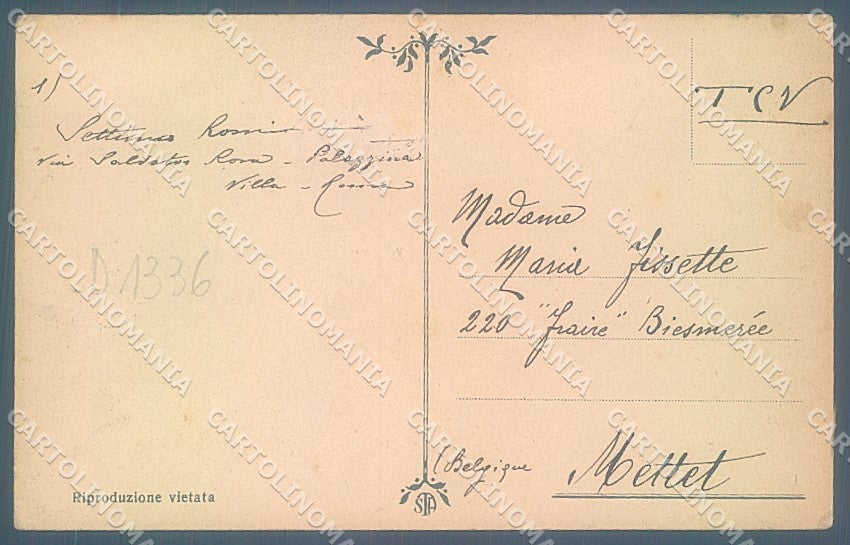 1)
Settimio Rossi
Via Salvator Rosa - Palazzina
Villa - Roma
D 1336
Riproduzione vietata
TCV
Madame
Maria Fissette
220 "Fraire" Biesmerée
(Belgique
Mettet
STA
CARTOLINOMANIA